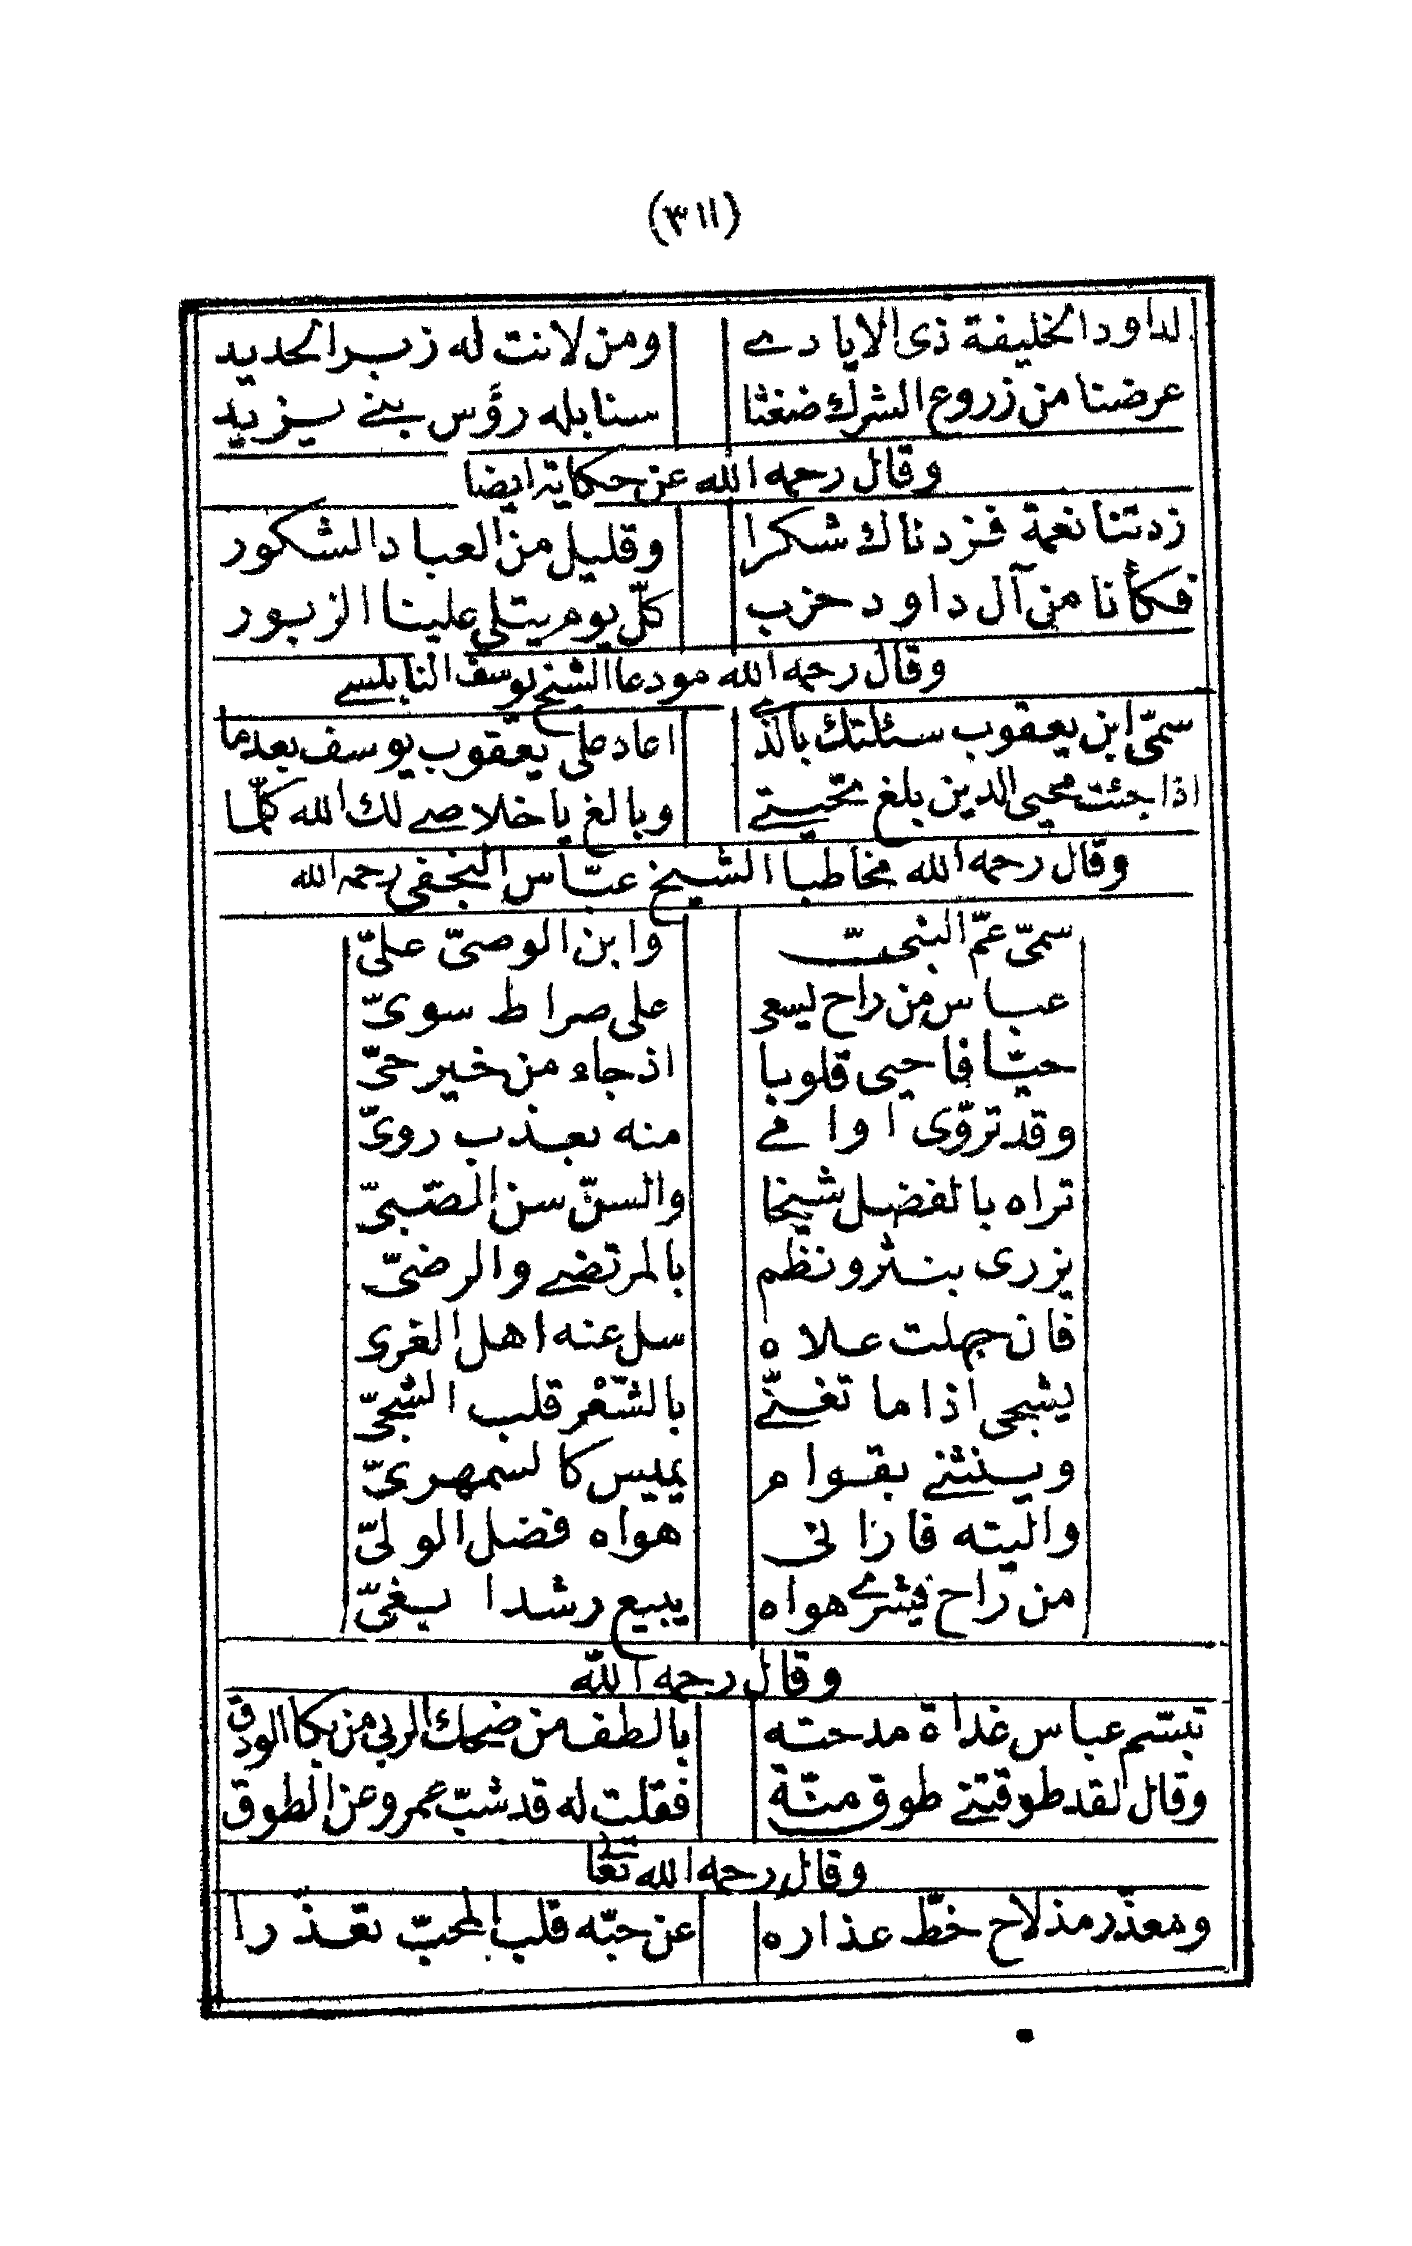 (٣١١)
لداود الخليفة ذى الايادے ومن لانت له زبر الحديد
عرضنا من زروع الشرك ضغثا سنابله رؤس بنے يزيد
وقال رحمه الله عن حكاية ايضا
زدتنا نعمة فزدناك شكرا وقليل من العباد الشكور
فكأنا من آل داود حزب كلّ يوم يتلى علينا الزبور
وقال رحمه الله مودعا الشيخ يوسف النابلسے
سمّى ابن يعقوب سئلتك بالذے اعاد على يعقوب يوسف بعدما
اذا جئت محيى الدين بلغ تحيتے وبالغ ياخلاصے لك الله كلّما
وقال رحمه الله مخاطبا الشيخ عبّاس النجفى رحمه الله
سمىّ عمّ النبى وابن الوصىّ علىّ
عباس من راح يسعى على صراط سوىّ
حيّا فاحيى قلوبا اذ جاء من خير حىّ
وقد تروّى اوامے منه بعذب روىّ
تراه بالفضل شيخا والسنّ سن الصّبىّ
يزرى بنثر ونظم بالمرتضے والرضىّ
فان جهلت علاه سل عنه اهل الغرى
يشجى اذا ما تغنّے بالشّعر قلب الشجىّ
وينثنے بقوام يميس كالسمهرىّ
واليته فازانى هواه فضل الولىّ
من راح فيشرے هواه يبيع رشدا بغىّ
وقال رحمه الله
تبسّم عباس غداة مدحته بالطف من ضحك الربى من بكا الودق
وقال لقد طوقتنے طوق منّة فقلت له قد شبّ عمرو عن الطوق
وقال رحمه الله تعا
ومعذّر مذ لاح خطّ عذاره عن حبّه قلب المحبّ تعذّرا